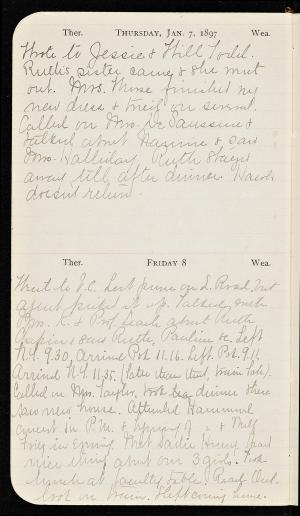 Ther. THURSDAY, JAN. 7, 1897 Wea.
Wrote to Jessie & Will Todd.
Ruth's sister came & she went
out. Mrs. finished my
new dress & tried on several.
Called on Mrs. De Saussure &
talked about & saw
Mrs. Halliday. Ruth stayed
away till after dinner.
doesn't return.
Ther. FRIDAY 8 Wea.
Went to V.C. Lost purse on Road, but
agent picked it up. Talked with
Mrs. K. & Prof. Leach about Ruth
& saw Ruth, Pauline &c. Left
N.Y. 9.30, Arrive Pok 11.16. Left Pok. 9.11,
Arrived N.Y. 11.35. (Later than that, train late).
Called on Mrs. Taylor, took dinner there
Saw new house. Attended Hammond
in P.M. & of & Phil
in evening. Met Sallie had
nice thing about our 3 girls. Took
lunch at faculty table. Read Out-
look on train. Slept coming home.